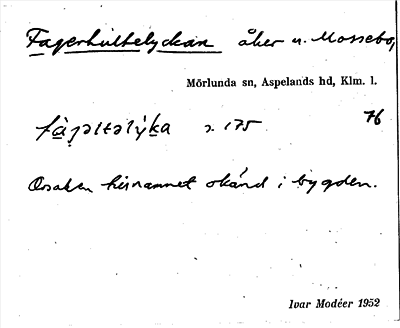 Fagerhultelyckan åker u. Mossebo,
Mörlunda sn, Aspelands hd, Klm. l.
s. 175 76
Orsaken t. namnet okänd i bygden.
Ivar Modéer 1952